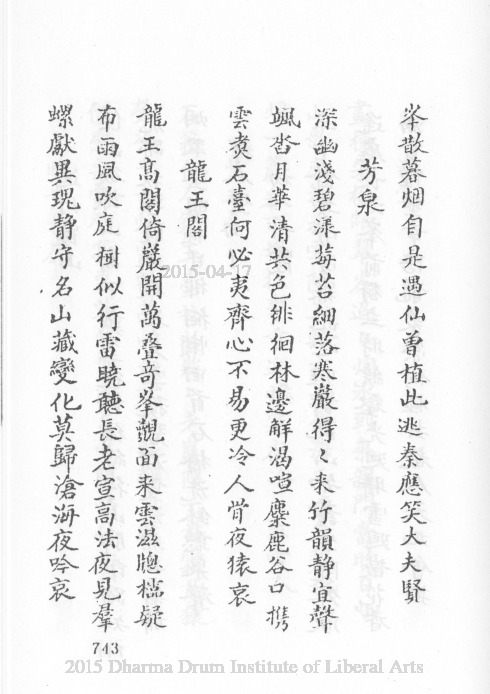 峯散暮烟自是遇仙曽植此逃秦應笑大夫賢
芳泉
深幽淺碧漾莓苔細落寒巖得〻来竹韻静宜聲
颯沓月華清共色徘徊林邊解渴喧麋鹿谷口携
雲煑石臺何必夷齊心不易更冷人骨夜猿哀
龍王閣
龍王髙閣倚巖開萬叠竒峯覿面来雲滋牕櫺疑
布雨風吹庭樹似行雷曉聽長老宣高法夜見羣
螺獻異瑰静守名山藏變化莫歸滄海夜吟哀
743
2015-04-17
2015 Dharma Drum Institute of Liberal Arts